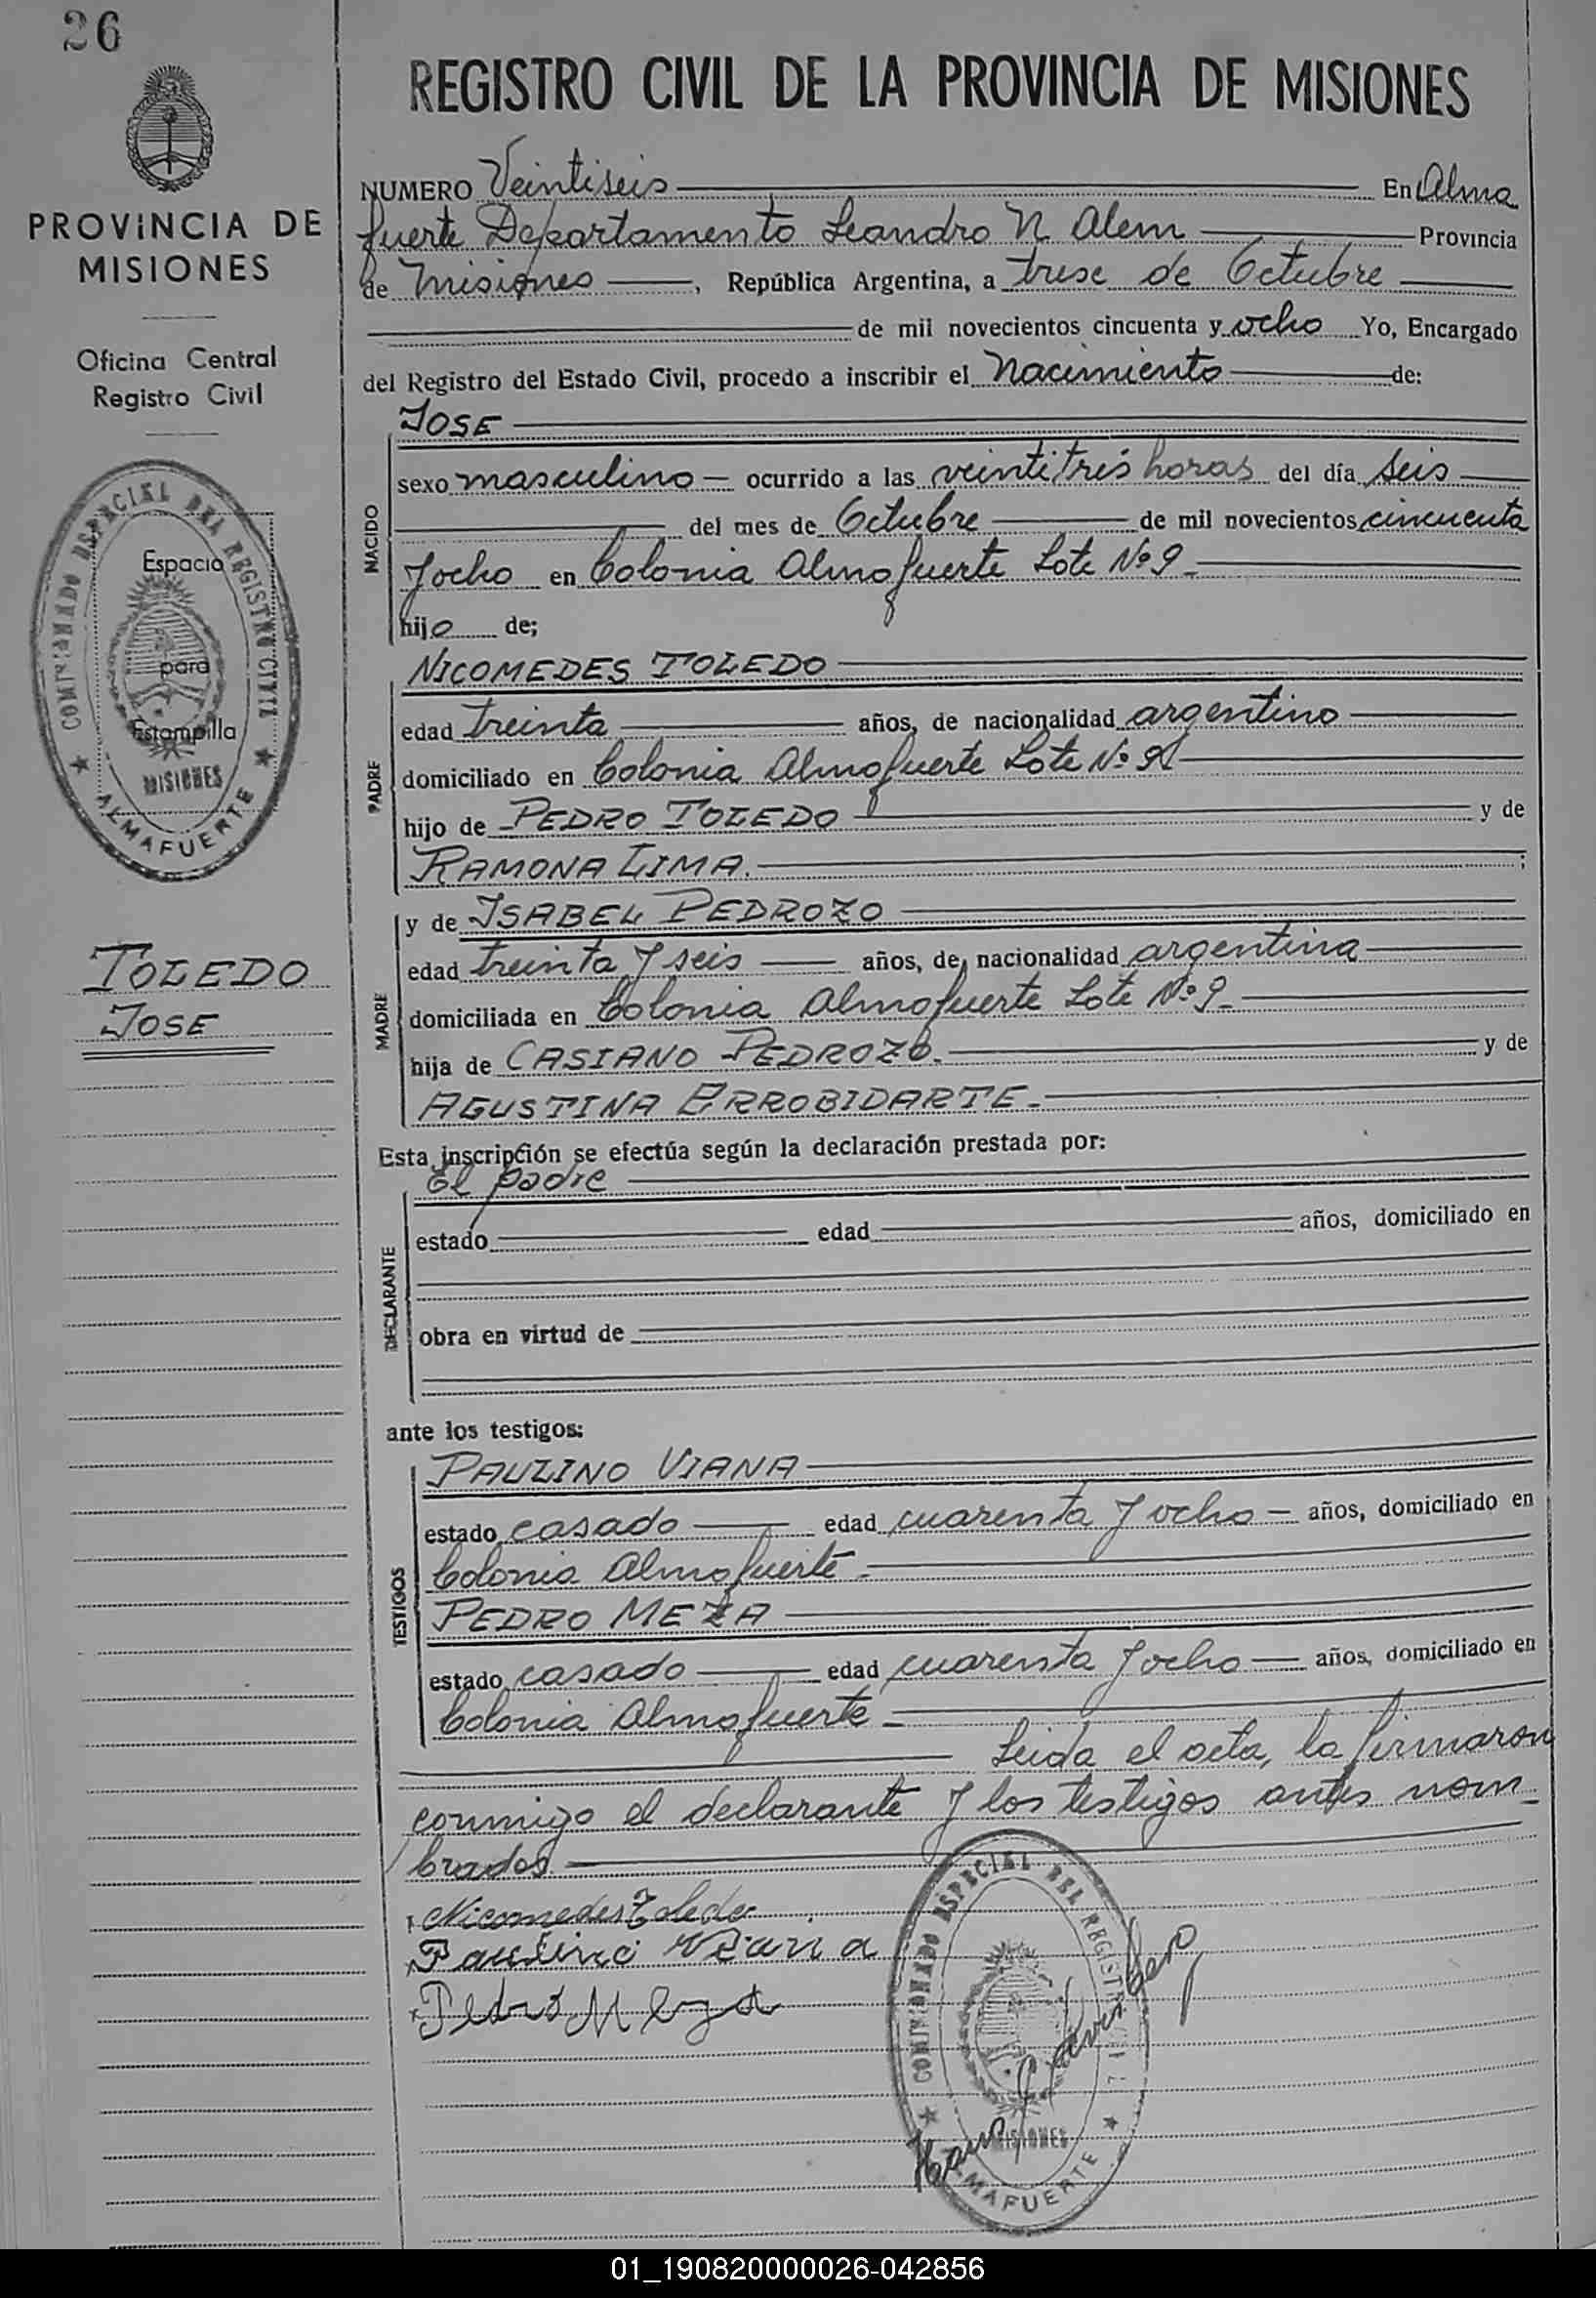 26
REGISTRO CIVIL DE LA PROVINCIA DE MISIONES
PROVINCIA DE
MISIONES
Oficina Central
Registro Civil
COMISIONADO ESPECIAL DEL REGISTRO CIVIL
Espacio
para
Estampilla
MISIONES
ALMAFUERTE
TOLEDO
JOSE
NUMERO Veintiseis En Alma
fuerte Departamento Leandro N Alem Provincia
de Misiones, República Argentina, a trese de Octubre
de mil novecientos cincuenta y ocho Yo, Encargado
del Registro del Estado Civil, procedo a inscribir el Nacimiento de:
NACIDO
JOSE
sexo masculino ocurrido a las veintitrés horas del día seis
del mes de Octubre de mil novecientos cincuenta
y ocho en Colonia Almafuerte Lote Nº 9
hijo de;
PADRE
NICOMEDES TOLEDO
edad treinta años, de nacionalidad argentino
domiciliado en Colonia Almafuerte Lote Nº
hijo de PEDRO TOLEDO y de
RAMONA LIMA. ;
MADRE
y de ISABEL PEDROZO
edad treinta y seis años, de nacionalidad argentina
domiciliada en Colonia Almafuerte Lote Nº 9
hija de CASIANO PEDROZO. y de
AGUSTINA ERROBIDARTE.
Esta inscripción se efectúa según la declaración prestada por:
DECLARANTE
El padre
estado edad años, domiciliado en
obra en virtud de
ante los testigos:
TESTIGOS
PAULINO VIANA
estado casado edad cuarenta y ocho años, domiciliado en
Colonia Almafuerte
PEDRO MEZA
estado casado edad cuarenta y ocho años, domiciliado en
Colonia Almafuerte
Leida el acta, la firmaron
conmigo el declarante y los testigos antes nom
brados.
Nicomedes Toledo
Paulino Viana
Pedro Meza
COMISIONADO ESPECIAL DEL REGISTRO CIVIL
MISIONES
ALMAFUERTE
01_190820000026-042856